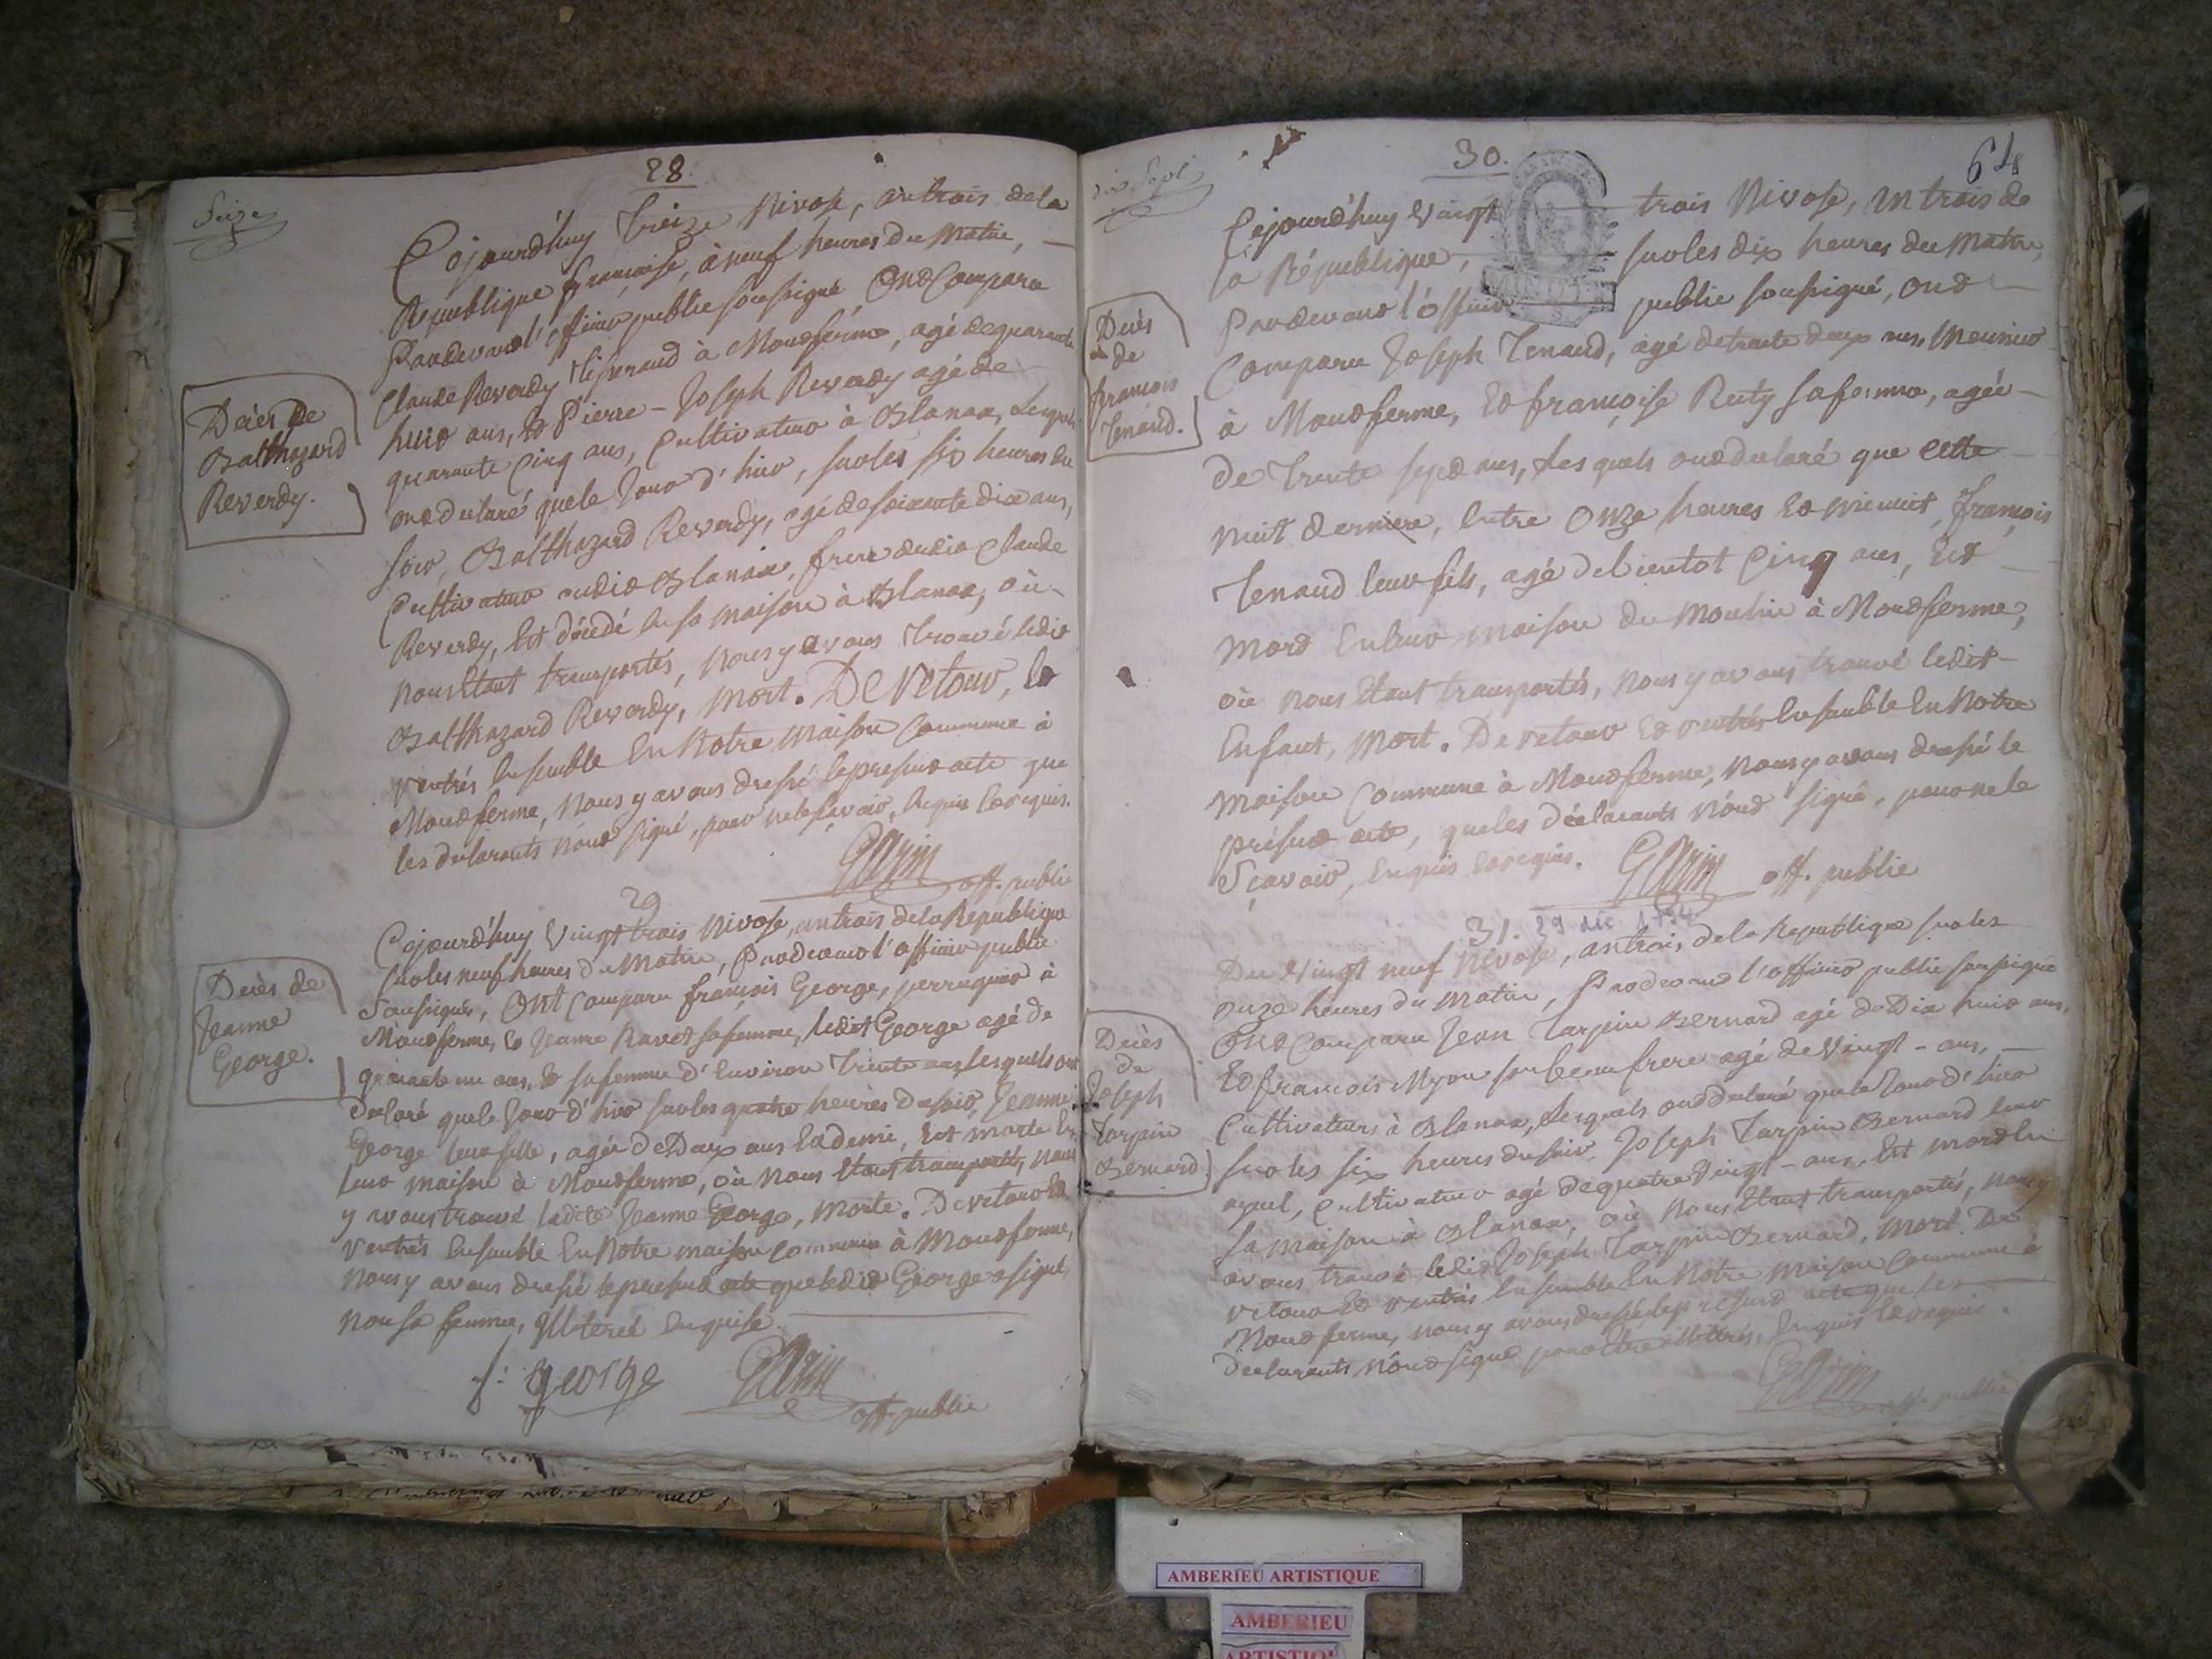 Seize
28.
Cejourd'huy Treize Nivose, an trois de la
République française, à neuf heures du matin,
Pardevant l'officier public soussigné Ont Comparu
Claude Reverdy Tisserand à Montferme, agé de quarante
huit ans, et Pierre-Joseph Reverdy agé de
quarante Cinq ans, Cultivateur à Blanaz, Lesquels
ont déclaré que le Jour d'hier, sur les six heures du
soir, Balthazard Reverdy, agé de soixante dix ans,
Cultivateur audit Blanaz, frere dudit Claude
Reverdy, Est décédé En sa maison à Blanaz, où
nous Etant transportés, nous y avons Trouvé ledit
Balthazard Reverdy, mort. De retour, Et
rentrés Ensemble En Notre maison Commune à
Montferme, nous y avons dressé le present acte que
les declarants n'ont signé, pour ne le scavoir, Enquis Et requis.
Garin off. public
Décès de
Balthazard
Reverdy.
29
Cejourd'huy Vingt trois Nivose, an trois de la République
sur les neuf heures du Matin, Pardevant l'officier public
Soussigné, Ont Comparu françois George, perruquier à
Montferme, et Jeanne Ravet sa femme, ledit George agé de
quarante un ans, et sa femme d'Environ Trente ans, Lesquels ont
declaré que le Jour d'hier sur les quatre heures du soir, Jeanne
George leur fille, agée de Deux ans Et demi, Est morte En
leur maison à Montferme, où nous Etant transportés, nous
y avons trouvé ladite Jeanne George, morte. De retour Et
rentrés Ensemble En Notre maison commune à Montferme,
nous y avons dressé le present acte que ledit George a signé
non sa femme, Illiterée Enquise.
f: george Garin
off. public
Décès de
Jeanne
George.
dix Sept
30.
64
Cejourd'huy Vingt trois Nivose, an trois de
la République, sur les dix heures du Matin,
Pardevant l'officier public soussigné, ont
Comparu Joseph Tenand, agé de trente deux ans, Meunier
à Montferme, Et françoise Ruty sa femme, agée
de Trente sept ans, Lesquels ont declaré que cette
nuit derniere, Entre Onze heures Et minuit, françois
Tenand leur fils, agé de bientot Cinq ans, Est
mort En leur maison du Moulin à Montferme,
où nous Etant transportés, nous y avons trouvé ledit
Enfant, mort. De retour Et rentrés Ensemble En Notre
maison Commune à Montferme, nous y avons dressé le
présent acte, que les déclarants n'ont signé, pour ne le
Sçavoir, Enquis Et requis. Garin off. public
Décès
de
françois
Tenand.
31. 29 déc. 1794
Du Vingt neuf Nivose, an trois de la République sur les
onze heures du matin, Pardevant l'officier public soussigné
Ont Comparu Jean Tarpin Bernard agé de Dix huit ans,
Et françois Myon son beau frere agé de Vingt-ans,
Cultivateurs à Blanaz, Lesquels ont declaré que le Jour d'hier
sur les six heures du soir, Joseph Tarpin Bernard leur
ayeul, Cultivateur agé de quatre Vingt-ans, Est mort En
sa maison à Blanaz, où nous Etant transportés, nous y
avons trouvé ledit Joseph Tarpin Bernard, mort. De
retour Et rentrés Ensemble En Notre maison Commune à
Montferme, nous y avons dressé le présent acte que les
declarants n'ont signé pour Etre illitérés, Enquis Et requis.
Garin
off. public
Décès
de
Joseph
Tarpin
Bernard.
AMBERIEU ARTISTIQUE
AMBERIEU